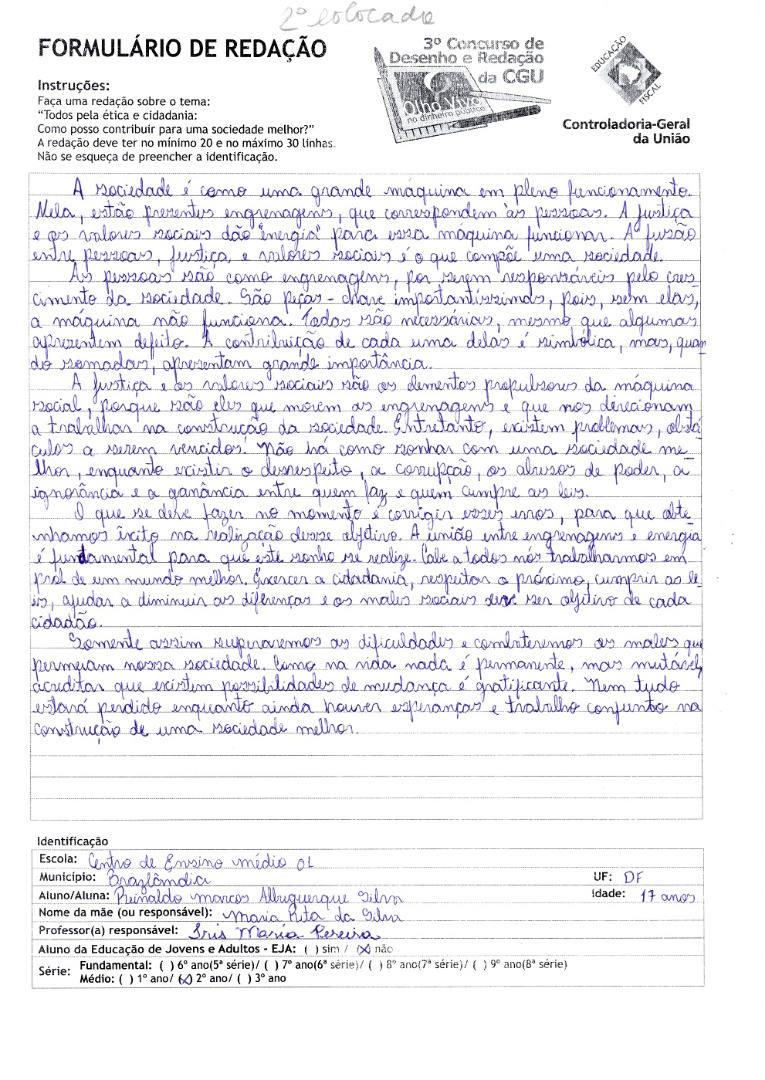 2º colocado
FORMULÁRIO DE REDAÇÃO
3º Concurso de
Desenho e Redação
da CGU
Olho Vivo
no dinheiro público
EDUCAÇÃO
FISCAL
Controladoria-Geral
da União
Instruções:
Faça uma redação sobre o tema:
"Todos pela ética e cidadania:
Como posso contribuir para uma sociedade melhor?"
A redação deve ter no mínimo 20 e no máximo 30 linhas.
Não se esqueça de preencher a identificação.
A sociedade é como uma grande máquina em pleno funcionamento.
Nela, estão presentes engrenagens, que correspondem às pessoas. A justiça
e os valores sociais dão "energia" para essa máquina funcionar. A fusão
entre pessoas, justiça, e valores sociais é o que compõe uma sociedade.
As pessoas são como engrenagens, por serem responsáveis pelo cres-
cimento da sociedade. São peças-chave importantíssimas, pois, sem elas,
a máquina não funciona. Todas são necessárias, mesmo que algumas
apresentem defeito. A contribuição de cada uma delas é simbólica, mas, quan-
do somadas, apresentam grande importância.
A justiça e os valores sociais são os elementos propulsores da máquina
social, porque são eles que movem as engrenagens e que nos direcionam
a trabalhar na construção da sociedade. Entretanto, existem problemas, obstá-
culos a serem vencidos. Não há como sonhar com uma sociedade me-
lhor, enquanto existir o desrespeito, a corrupção, os abusos de poder, a
ignorância e a ganância entre quem faz e quem cumpre as leis.
O que se deve fazer no momento é corrigir esses erros, para que obte-
nhamos êxito na realização desse objetivo. A união entre engrenagens e energia
é fundamental para que este sonho se realize. Cabe a todos nós trabalharmos em
prol de um mundo melhor. Exercer a cidadania, respeitar o próximo, cumprir as le-
is, ajudar a diminuir as diferenças e os males sociais deve ser objetivo de cada
cidadão.
Somente assim superaremos as dificuldades e combateremos os males que
permeiam nossa sociedade. Como na vida nada é permanente, mas mutável,
acreditar que existem possibilidades de mudança é gratificante. Nem tudo
estará perdido enquanto ainda houver esperanças e trabalho conjunto na
construção de uma sociedade melhor.
Identificação
Escola: Centro de Ensino médio 01
Município: Brazlândia UF: DF
Aluno/Aluna: Reinaldo Marcos Albuquerque Silva Idade: 17 anos
Nome da mãe (ou responsável): Maria Rita da Silva
Professor(a) responsável: Iris Maria Pereira
Aluno da Educação de Jovens e Adultos - EJA: ( ) sim / (X) não
Série: Fundamental: ( ) 6º ano(5ª série)/ ( ) 7º ano(6ª série)/ ( ) 8º ano(7ª série)/ ( ) 9º ano(8ª série)
Médio: ( ) 1º ano/ (X) 2º ano/ ( ) 3º ano